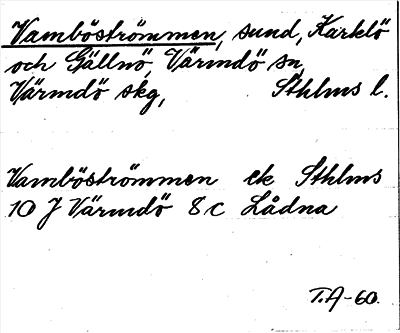 Vamböströmmen, sund, Karklö
och Gällnö, Värmdö sn,
Värmdö skg, Sthlms l.
Vamböströmmen ek Sthlms
10 J Värmdö 8c Lådna
T.A-60.